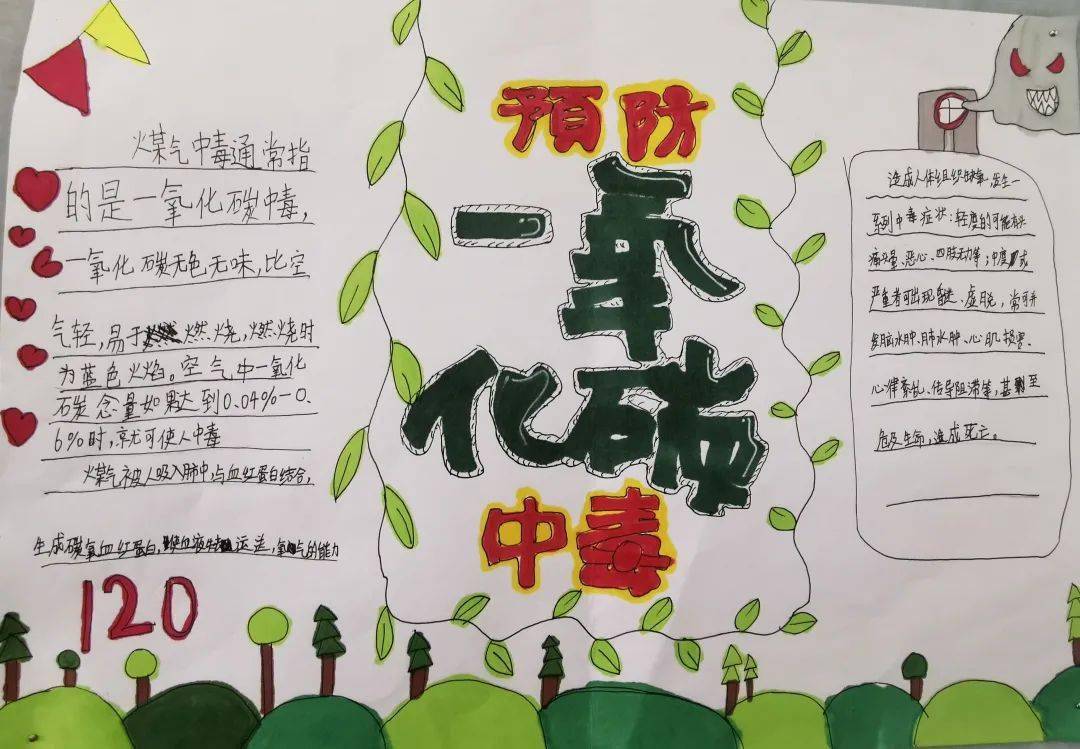 煤气中毒通常指
的是一氧化碳中毒,
一氧化碳无色无味,比空
气轻,易于燃烧,燃烧时
为蓝色火焰。空气中一氧化
碳含量如果达到0.04%-0.
6%时,就可使人中毒
煤气被人吸入肺中,与血红蛋白结合,
生成碳氧血红蛋白,血液运送,氧气的能力
120
預防
一氧
化碳
中毒
造成人体组织缺氧,发生一
系列中毒症状:轻度的可能有头
痛头晕、恶心、四肢无力等;中度或
严重者可出现昏迷、虚脱,常可并
发脑水肿、肺水肿、心肌损害、
心律紊乱、传导阻滞等,甚至
危及生命,造成死亡。